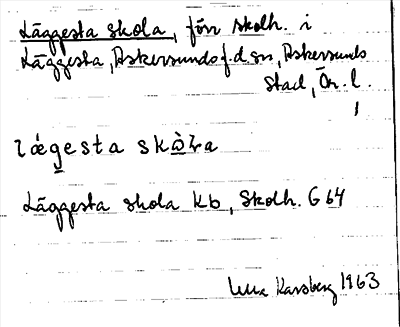 Läggesta skola, förr skolh. i
Läggesta, Askersunds f.d. sn, Askersunds
stad, Ör. l.
lǽgesta skὼla
Läggesta skola kb, Skolh. G 64
Karsberg 1963